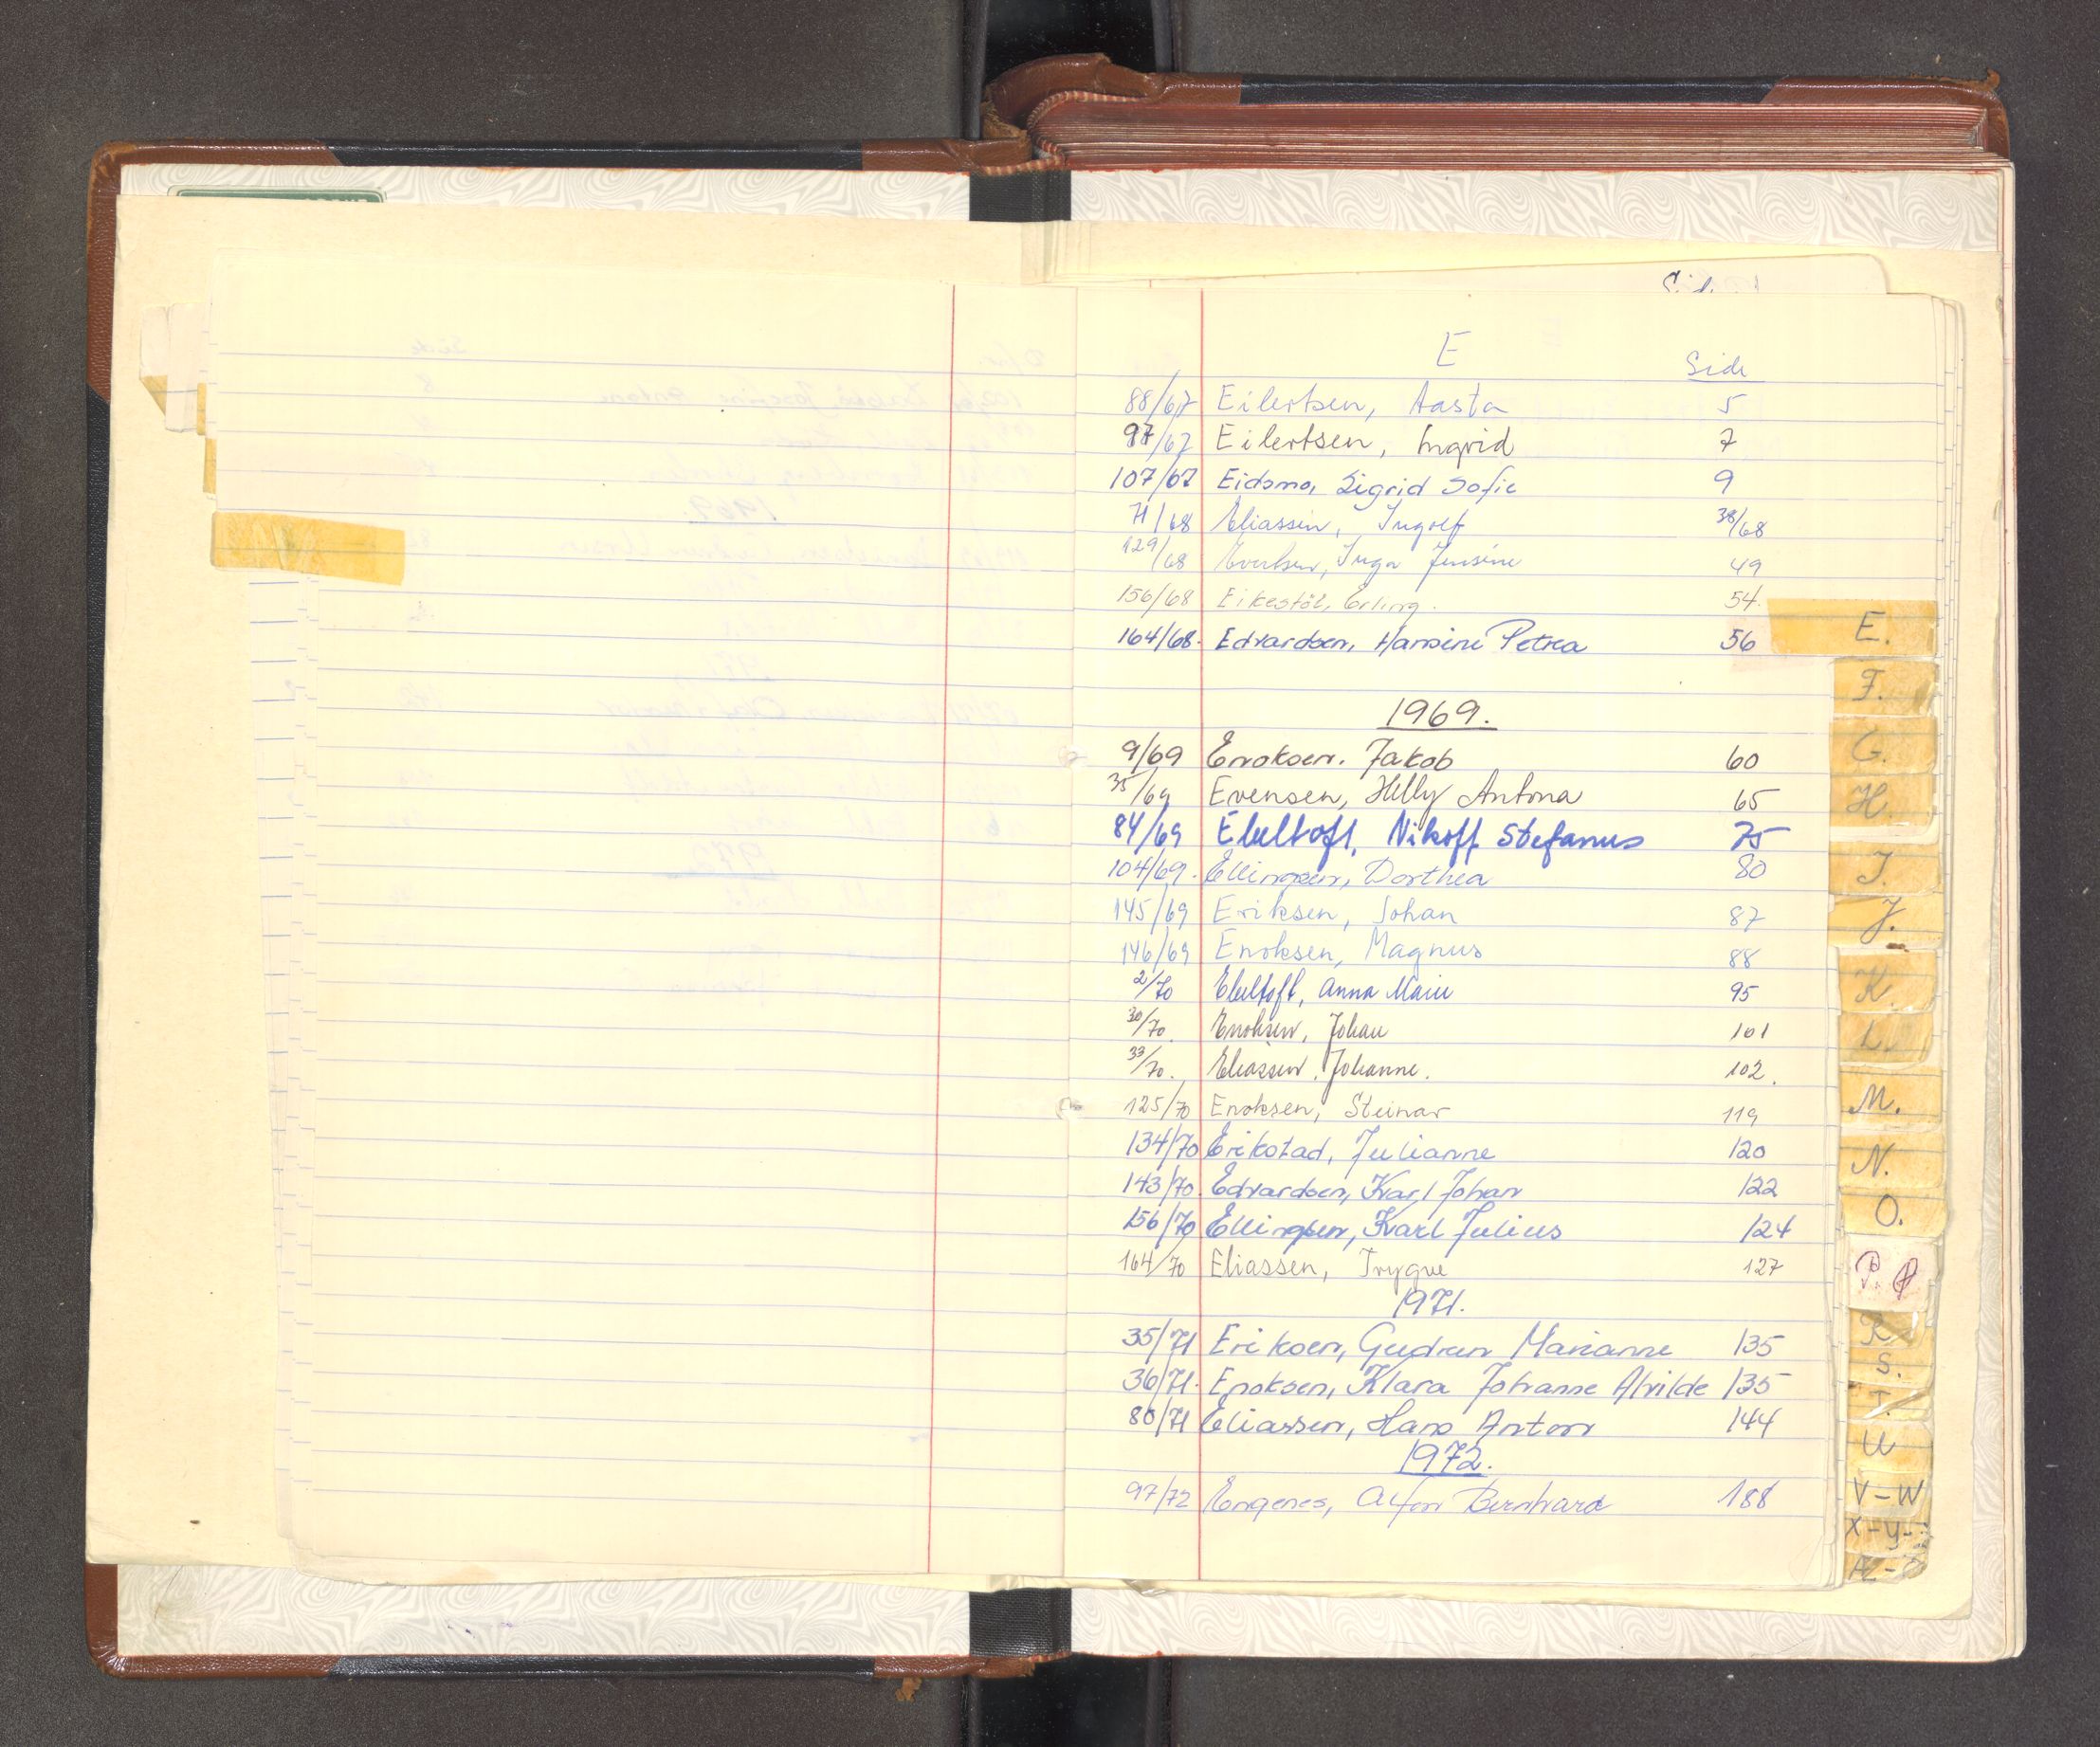 E
Side
88/67 Eilertsen, Aasta 5
97/67 Eilertsen, Ingrid 7
107/67 Eidsmo, Sigrid Sofie 9
71/68 Eliassen, Ingolf 38/68
129/68 Evertsen, Inga Jensine 49
156/68 Eikestöl, Erling. 54.
164/68. Edvardsen, Hansine Petrea 56
1969.
9/69 Enoksen. Jakob 60
35/69 Evensen, Helly Antona 65
84/69 Ebeltoft, Nikoff Stefanus 75
104/69. Ellingsen, Dorthea 80
145/69 Eriksen, Johan 87
146/69 Enoksen, Magnus 88
2/70 Ebeltoft, Anna Marie 95
30/70. Enoksen, Johan 101
33/70. Eliassen, Johanne. 102.
125/70 Enoksen, Steinar 119
134/70 Erikstad, Julianne 120
143/70. Edvardsen, Karl Johan 122
156/70 Ellingsen, Karl Julius 124
164/70 Eliassen, Trygve 127
1971.
35/71 Eriksen, Gudrun Marianne 135
36/71. Enoksen, Klara Johanne Alvilde 135
80/71 Eliassen, Hans Anton 144
1972.
97/72 Engenes, Alfon Bernhard 188
E.
F.
G.
H.
I.
J.
K.
L.
M.
N.
O.
P.
R.
S.
T.
U
V-W
X-Y-